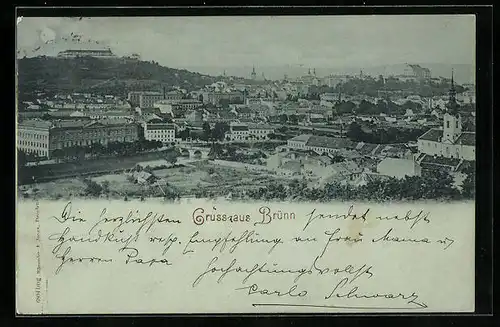 Gruss aus Brünn
Die herzlichsten
sendet nebst
Handkuß resp. Empfehlung an Frau Mama u
Herren Papa
Hochachtungsvollst
Carlo Schwarz